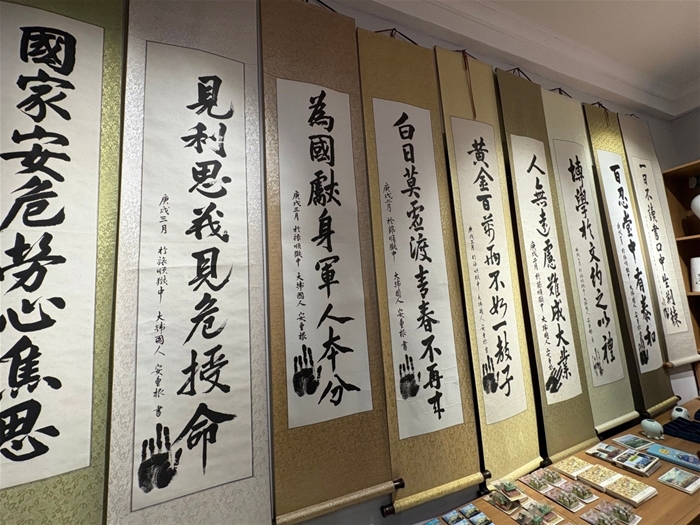 國家安危勞心焦思
見利思義見危授命
庚戌三月 於旅順獄中 大韓國人 安重根 書
為國獻身軍人本分
庚戌三月 於旅順獄中 大韓國人 安重根
白日莫虛渡青春不再來
庚戌三月 於旅順獄中 大韓國人 安重根 書
黃金百萬兩不如一教子
人無遠慮難成大業
博學於文約之以禮
百忍堂中有泰和
一日不讀書口中生荊棘